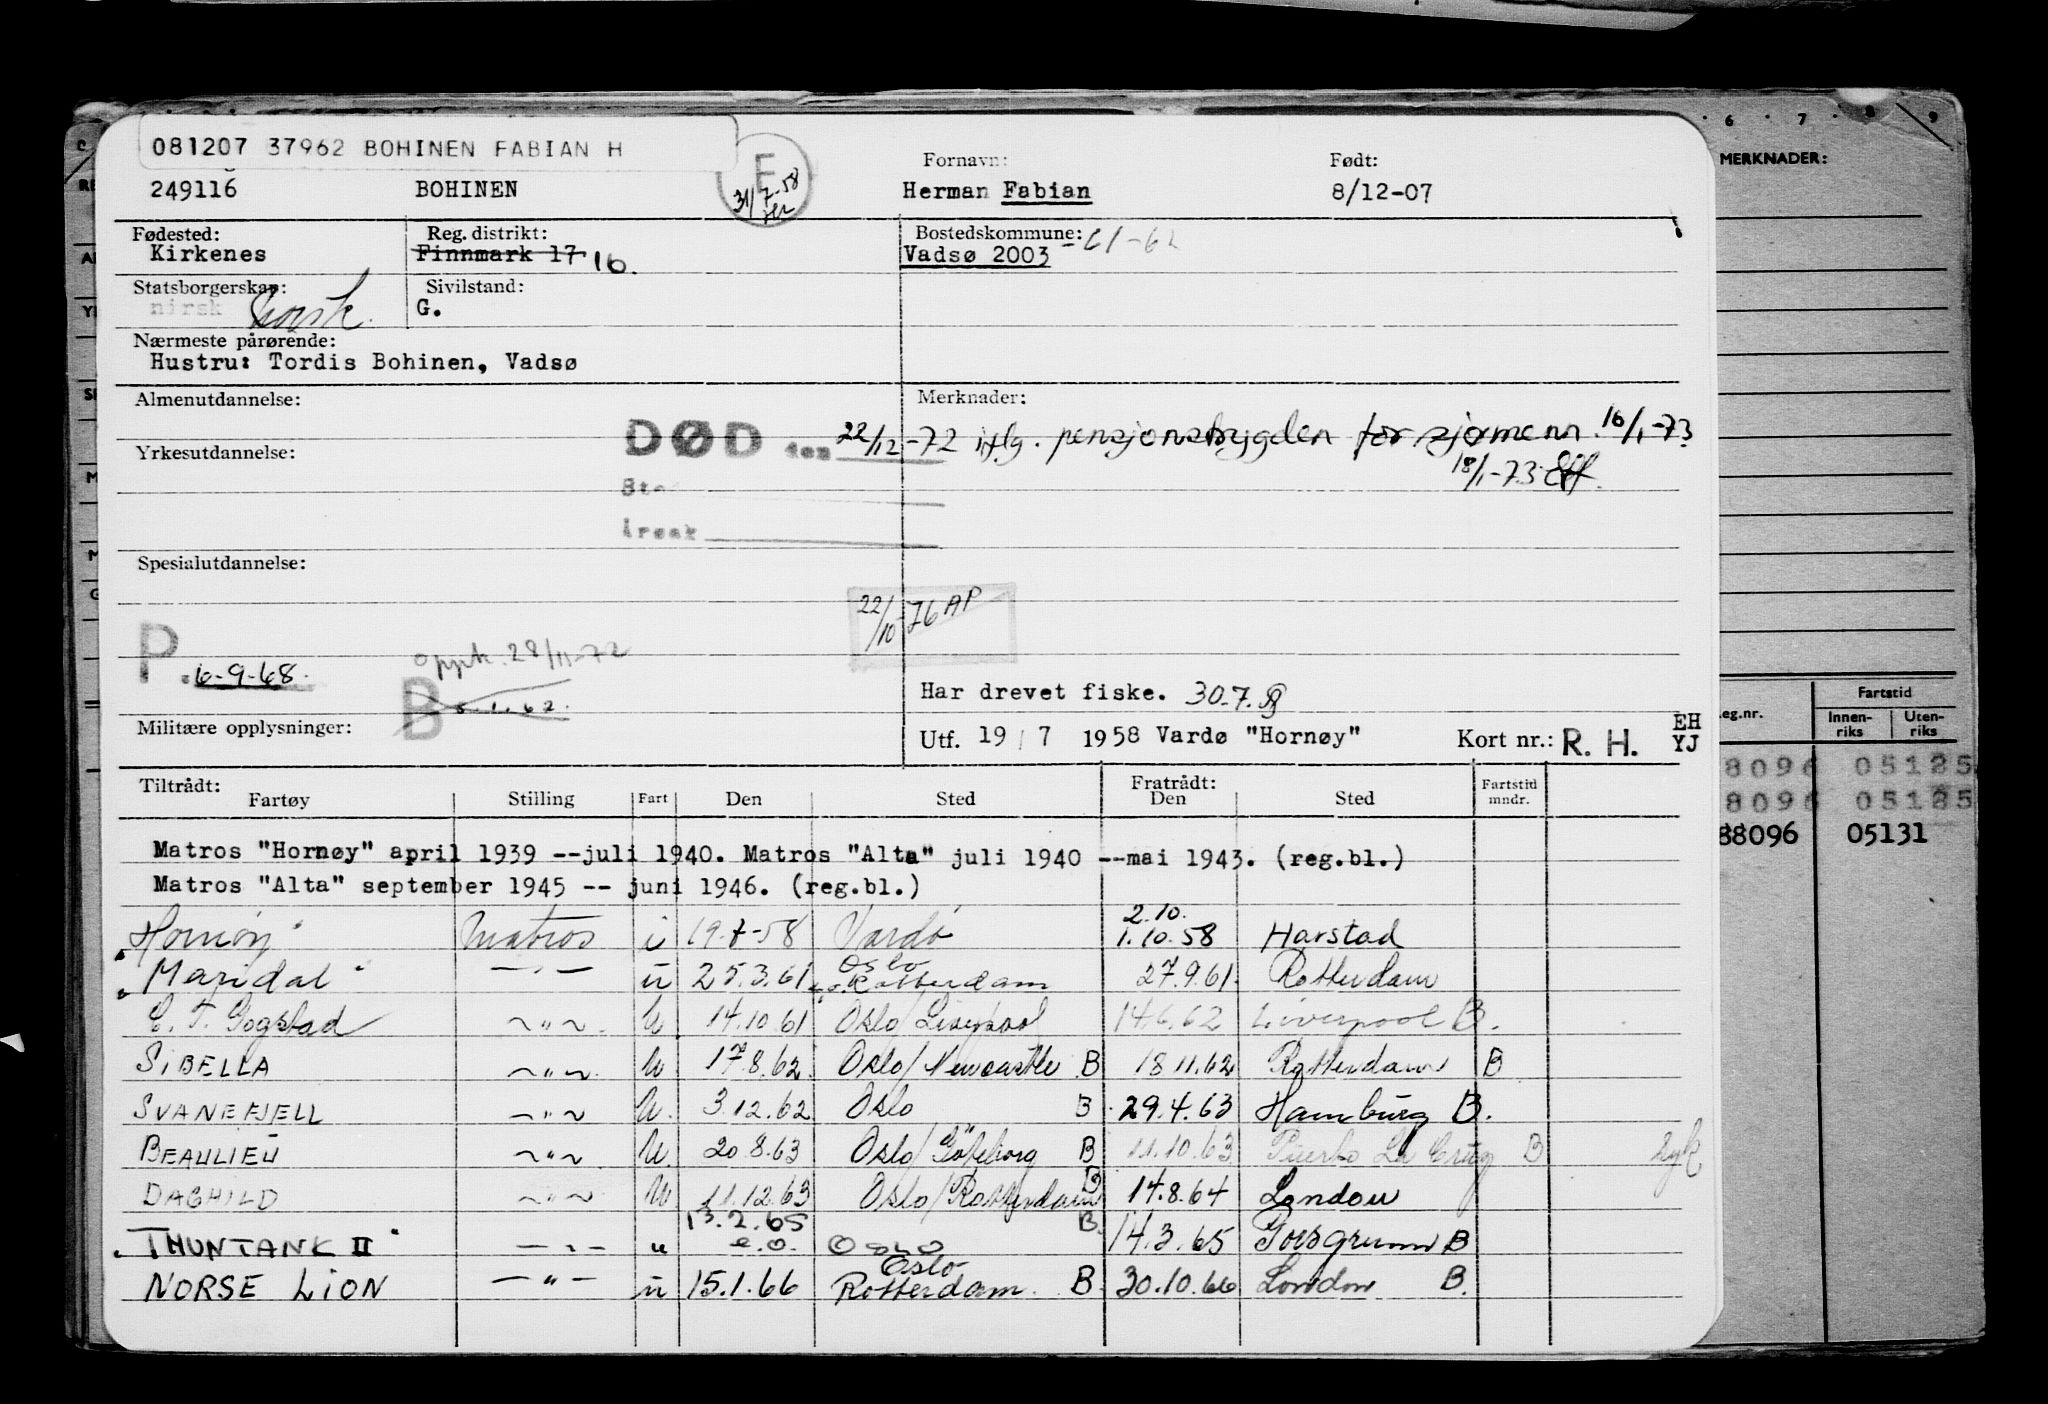 081207 37962 BOHINEN FABIAN H
E
31/7-58
Fornavn: Født:
249116 BOHINEN Herman Fabian 8/12-07
Fødested: Reg. distrikt: Bostedskommune: -61-62
Kirkenes Finnmark 17 16. Vadsø 2003
Statsborgerskap: Sivilstand:
nirsk norsk G.
Nærmeste pårørende:
Hustru: Tordis Bohinen, Vadsø
Almenutdannelse: Merknader:
DØD den 22/12-72 iflg. pensjonstrygden for sjømenn. 16/1-73
18/1-73
Yrkesutdannelse:
Årsak
Spesialutdannelse:
22/10-76 AP
P. 6-9-68. B oppk. 28/11-72
Har drevet fiske. 30.7.
Militære opplysninger: Utf. 19/7 1958 Vardø "Hornøy" Kort nr.: R. H. EH
YJ
Tiltrådt: Fratrådt:
Fartøy Stilling Fart Den Sted Den Sted Fartstid mndr.
Matros "Hornøy" april 1939 --juli 1940. Matros "Alta" juli 1940 --mai 1943. (reg.bl.)
Matros "Alta" september 1945 -- juni 1946. (reg.bl.)
"Hornøy" Matros i 19-7-58 Vardø 2.10. 1.10.58 Harstad
"Maridal" —"— u 25.3.61 Oslo Rotterdam 27.9.61 Rotterdam
C. T. Gogstad ~"~ U 14.10.61 Oslo/Liverpool 14.6.62 Liverpool B.
SIBELLA ~"~ U 17.8.62 Oslo/Newcastle B 18.11.62 Rotterdam B
SVANEFJELL ~"~ U. 3.12.62 Oslo B 29.4.63 Hamburg B.
BEAULIEU ~"~ U. 20.8.63 Oslo/Göteborg B 11.10.63 Puerto La Cruz B syk
DAGHILD ~"~ U 11.12.63 Oslo/Rotterdam B 14.8.64 London
"THUNTANK II" —"— u 13.2.65 e.o. Oslo B. 14.3.65 Porsgrunn B
NORSE LION —"— u 15.1.66 Oslo Rotterdam B 30.10.66 London B.
6 7 8 9
MERKNADER:
Fartstid
eg.nr. Innenriks Utenriks
8096 05125
8096 05125
88096 05131